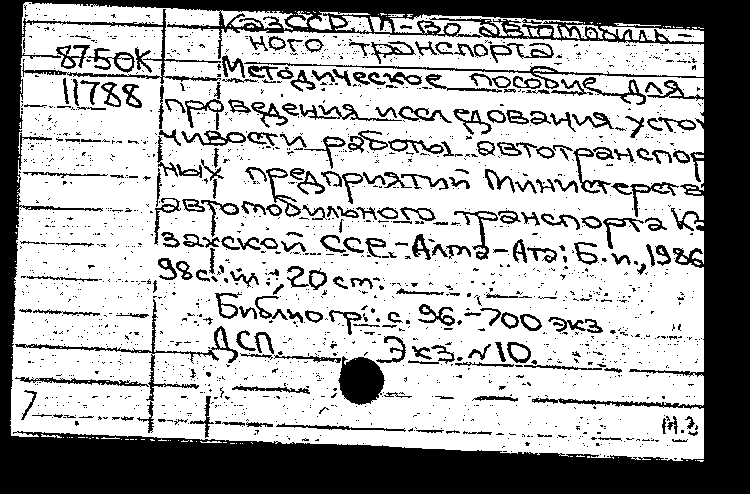 КазССР. М-во автомобиль-
ного транспорта.
87-50К
Методическое пособие для
11788
проведения исследования устой
чивости работы автотранспор
ных предприятий Министерств
автомобильного транспорта Ка
захской ССР.-Алма-Ата: Б.и., 1986
98с.: ил.; 20 см.
Библиогр.: с. 96. - 700 экз.
ДСП. Экз. N10.
7